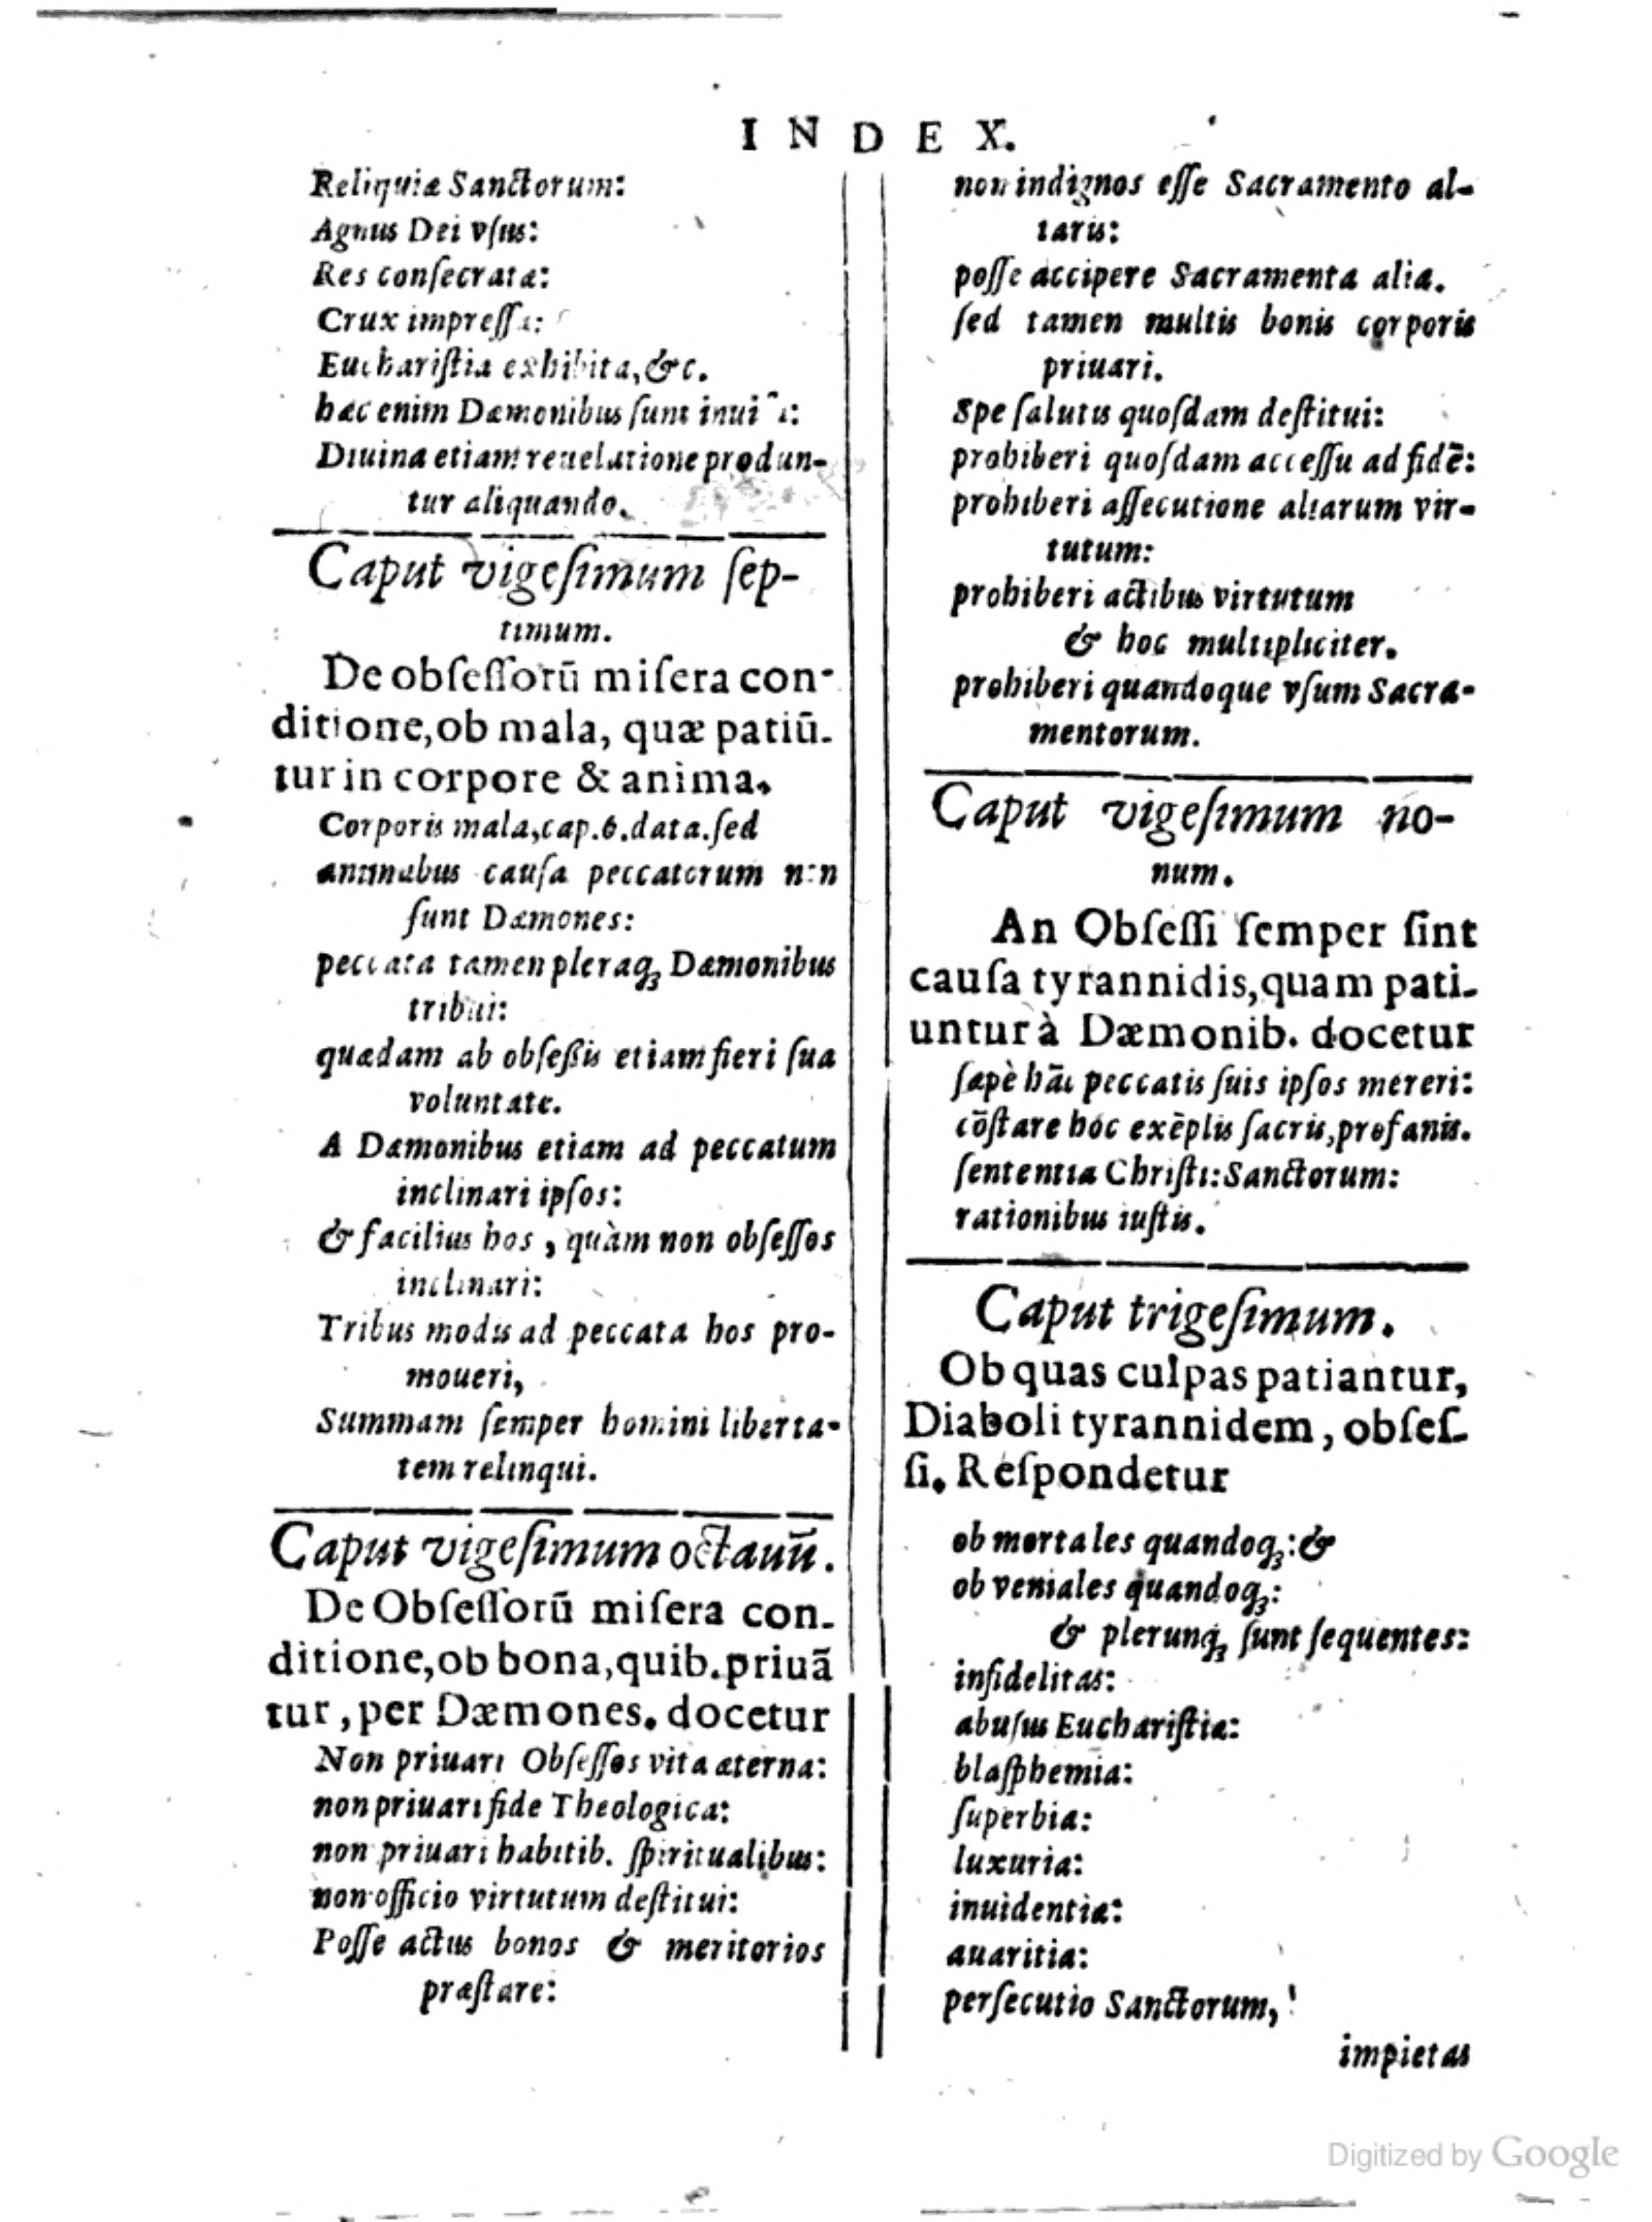 INDEX.
Reliquiæ Sanctorum:
Agnus Dei vſus:
Res conſecratæ:
Crux impreſſa:
Euchariſtia exhibita, &c.
hæc enim Dæmonibus ſunt
Diuina etiam reuelatione produn-
tur aliquando.
Caput vigeſimum ſep-
timum.
De obſeſſorũ miſera con-
ditione, ob mala, quæ patiũ-
tur in corpore & anima.
Corporis mala, cap. 6. data. ſed
animabus cauſa peccatorum non
ſunt Dæmones:
peccata tamen pleraq; Dæmonibus
tribui:
quædam ab obſeßis etiam fieri ſua
voluntate.
A Dæmonibus etiam ad peccatum
inclinari ipſos:
& facilius hos, quàm non obſeſſos
inclinari:
Tribus modis ad peccata hos pro-
moueri,
Summam ſemper homini liberta-
tem relinqui.
Caput vigeſimum octauũ.
De Obſeſſorũ miſera con-
ditione, ob bona, quib. priuã
tur, per Dæmones. docetur
Non priuari Obſeſſos vita æterna:
non priuari fide Theologica:
non priuari habitib. ſpiritualibus:
non officio virtutum deſtitui:
Poſſe actus bonos & meritorios
præſtare:
non indignos eſſe Sacramento al-
taris:
poſſe accipere Sacramenta alia.
ſed tamen multis bonis corporis
priuari.
Spe ſalutis quoſdam deſtitui:
prohiberi quoſdam acceſſu ad fidẽ:
prohiberi aſſecutione aliarum vir-
tutum:
prohiberi actibus virtutum
& hoc multipliciter.
prohiberi quandoque vſum Sacra-
mentorum.
Caput vigeſimum no-
num.
An Obſeſſi ſemper ſint
cauſa tyrannidis, quam pati-
untur à Dæmonib. docetur
ſæpè hãc peccatis ſuis ipſos mereri:
cõſtare hoc exẽplis ſacris, profanis.
ſententia Chriſti: Sanctorum:
rationibus iuſtis.
Caput trigeſimum.
Ob quas culpas patiantur,
Diaboli tyrannidem, obſeſ-
ſi. Reſpondetur
ob mortales quandoq;: &
ob veniales quandoq;:
& plerunq; ſunt ſequentes:
infidelitas:
abuſus Euchariſtiæ:
blaſphemia:
ſuperbia:
luxuria:
inuidentia:
auaritia:
perſecutio Sanctorum,
impietas
Digitized by Google